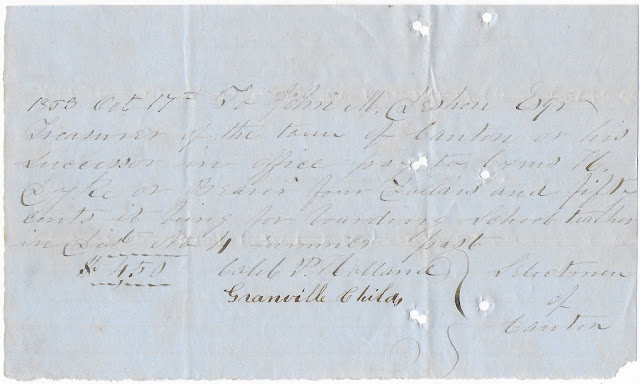 1853 Oct 17th To John M. Deshon Esqr
Treasurer of the town of Canton or his
Successor in office pay to Cyrus H.
or Bearer four Dollars and fifty
cents it being for boarding School teacher
in Dist No 4 summer past
$ 4.50 Caleb P. Holland Selectmen
Granville Childs of
Canton